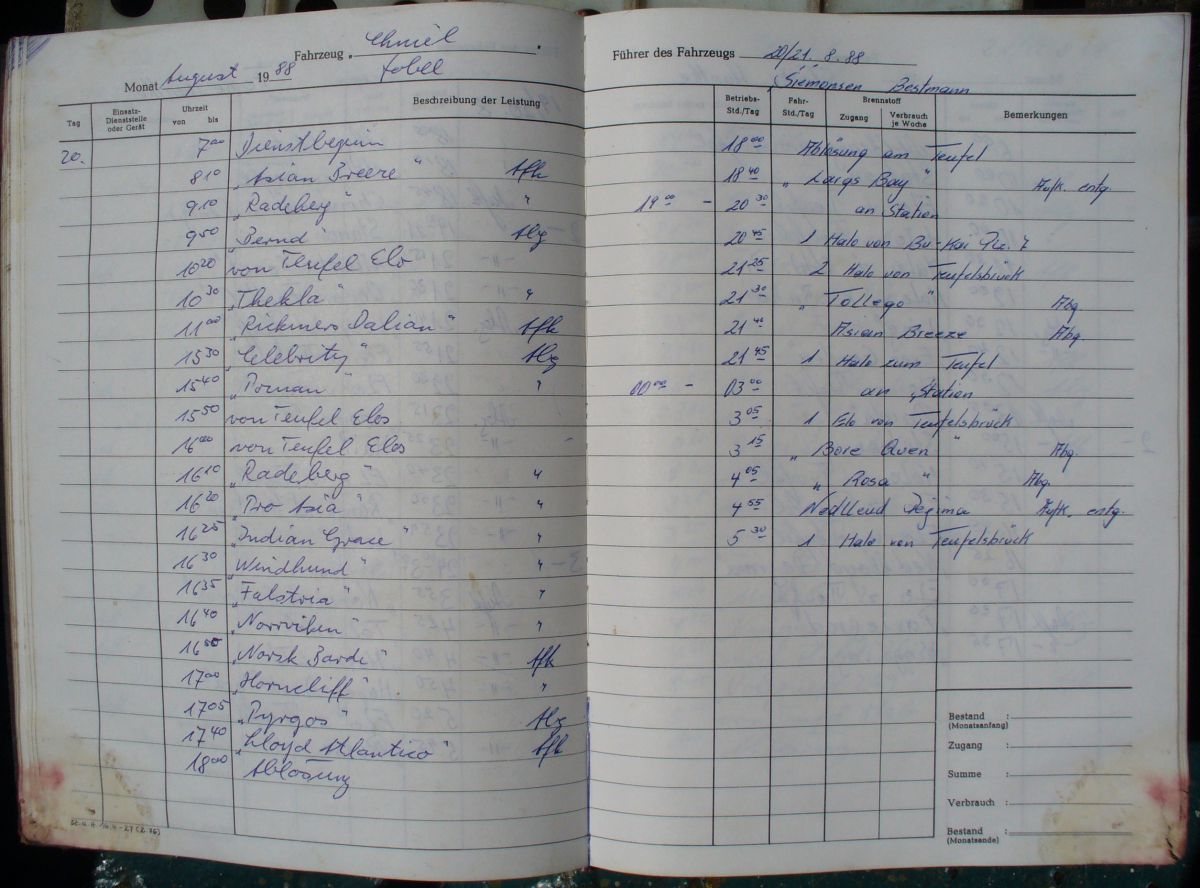 Fahrzeug „ Chmiel
Monat August 1988 Tobel
Tag Einsatz-Dienststelle oder Gerät Uhrzeit von bis Beschreibung der Leistung
20. 7⁰⁰ Dienstbeginn
8¹⁰ „Asian Breeze" Afk
9¹⁰ „Radeberg" "
9⁵⁰ „Bernd" Abg
10²⁰ von Teufel Elo
10³⁰ „Thekla" "
11⁰⁰ „Rickmers Dalian" Afk
15³⁰ „Celebrity" Abg
15⁴⁰ „Poznan" "
15⁵⁰ von Teufel Elos
16⁰⁰ von Teufel Elos
16¹⁰ „Radeberg" "
16²⁰ „Pro Asia" "
16²⁵ „Indian Grace" "
16³⁰ „Windhund" "
16³⁵ „Falstria" "
16⁴⁰ „Norrviken" "
16⁵⁰ „Norsk Barde" Afk
17⁰⁰ „Horncliff" "
17⁰⁵ „Pyrgos" Abg
17⁴⁰ „Lloyd Atlantico" Afk
18⁰⁰ Ablösung
Führer des Fahrzeugs 20/21. 8. 88
Siemonsen Bestmann
Betriebs-Std./Tag Fahr-Std./Tag Brennstoff Zugang Verbrauch je Woche Bemerkungen
18⁰⁰ Ablösung am Teufel
18⁴⁰ „ Largs Bay " Aufk. entg.
19⁰⁰ – 20³⁰ an Station
20⁴⁵ 1 Halo von Bu-Kai
21²⁵ 2 Halo von Teufelsbrück
21³⁰ „ Tollego " Abg.
21⁴⁰ Asian Breeze Abg.
21⁴⁵ 1 Halo zum Teufel
00⁰⁰ – 03⁰⁰ an Station
3⁰⁵ 1 Elo von Teufelsbrück
3¹⁵ „ Bore Queen " Abg.
4⁰⁵ „ Rosa " Abg.
4⁵⁵ Nedlleud Regina Aufk. entg.
5³⁰ 1 Halo von Teufelsbrück
Bestand (Monatsanfang) :
Zugang :
Summe :
Verbrauch :
Bestand (Monatsende) :